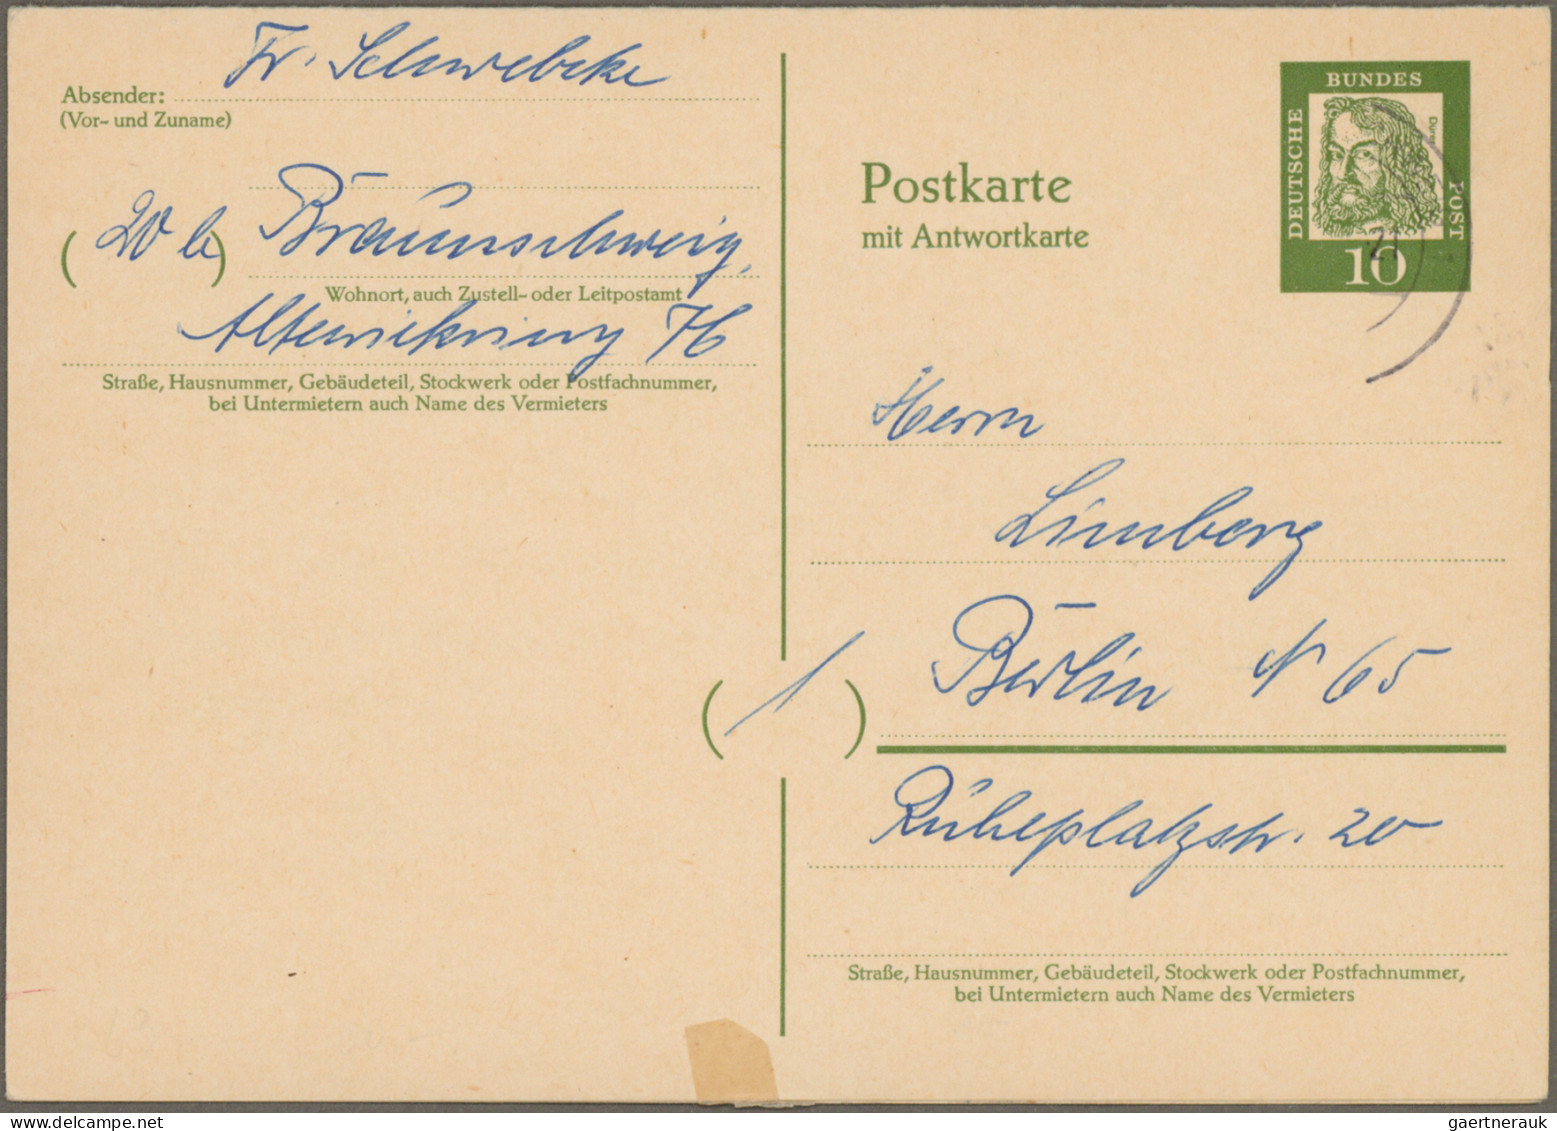 Fr. Schwebcke
Absender:
(Vor- und Zuname)
(20b) Braunschweig,
Wohnort, auch Zustell- oder Leitpostamt
Altewiekring 76
Straße, Hausnummer, Gebäudeteil, Stockwerk oder Postfachnummer,
bei Untermietern auch Name des Vermieters
DEUTSCHE
BUNDES
POST
Dürer
10
21
Postkarte
mit Antwortkarte
Herrn
Limberg
(1) Berlin N 65
Ruheplatzstr. 20
Straße, Hausnummer, Gebäudeteil, Stockwerk oder Postfachnummer,
bei Untermietern auch Name des Vermieters
gaertnerauk